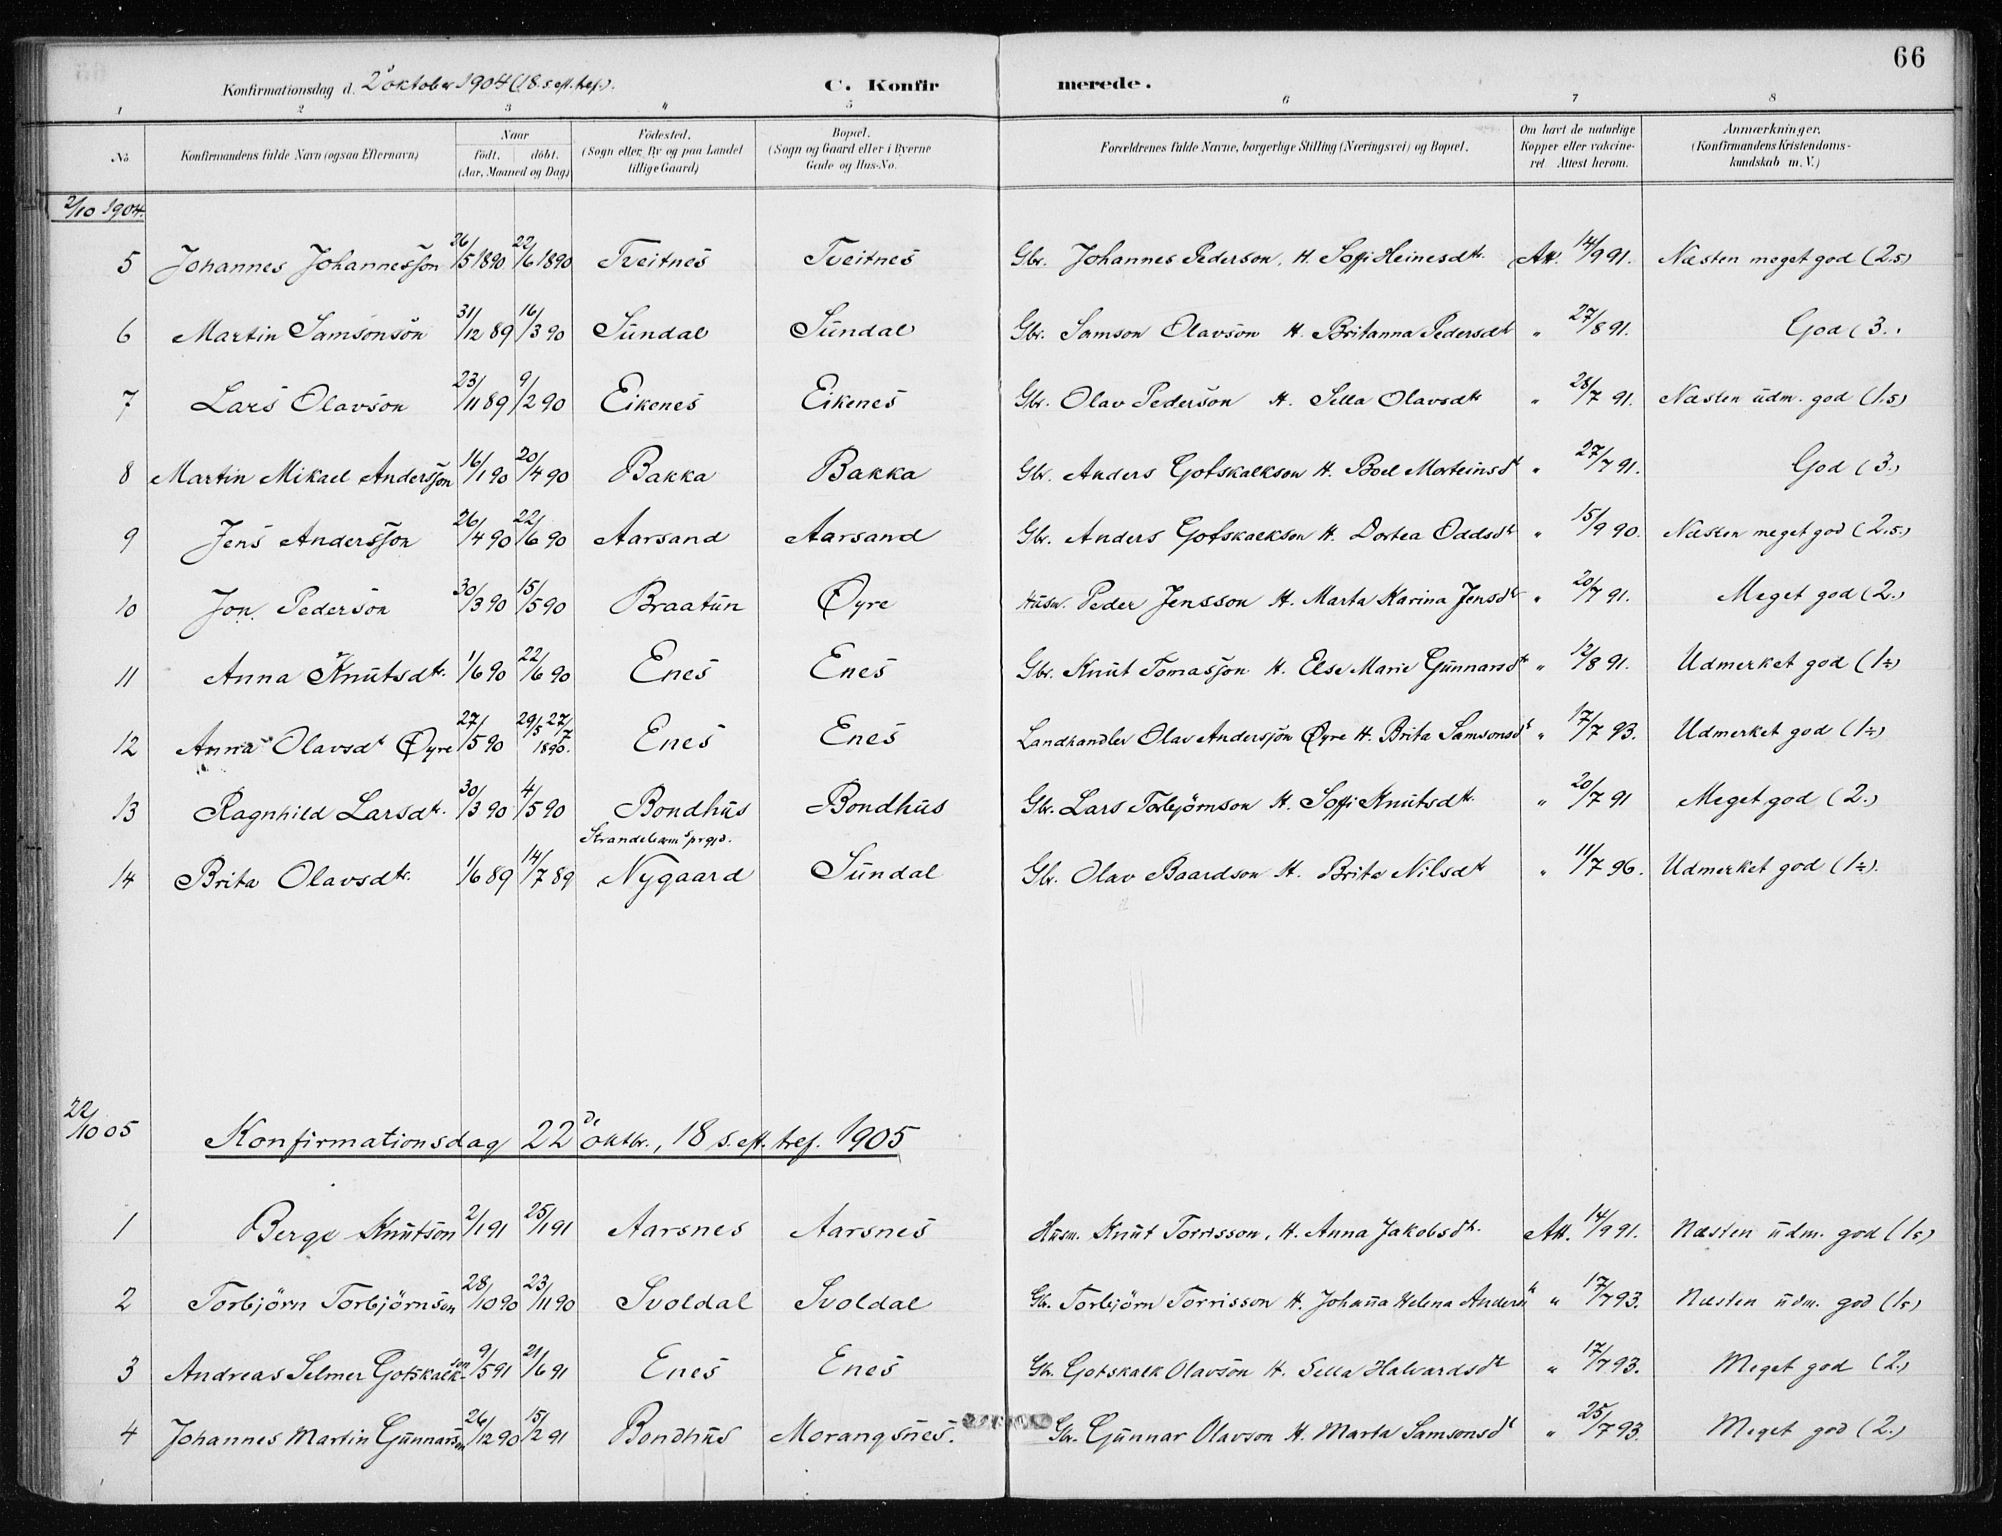 66
Konfirmationsdag d. 2 oktober 1904 (18. s. eft. tref.).
C. Konfir merede.
1 2 3 4 5 6 7 8
No Konfirmandens fulde Navn (ogsaa Efternavn) Naar födt. döbt. (Aar, Maaned og Dag) Födested. (Sogn eller By og paa Landet tillige Gaard) Bopæl. (Sogn og Gaard eller i Byerne Gade og Hus-No. Forældrenes fulde Navne, borgerlige Stilling (Næringsvei) og Bopæl. Om havt de naturlige Kopper eller vakcineret Attest herom. Anmærkninger. (Konfirmandens Kristendomskundskab m. V.)
2/10 1904.
5 Johannes Johannesson 26/5 1890 22/6 1890 Tveitnes Tveitnes Gbr. Johannes Pederson, H. Soffi Heinesdtr. Att. 14/9 91. Næsten meget god (2.5)
6 Martin Samsonson 31/12 89 16/3 90 Sundal Sundal Gbr. Samson Olavson H. Britanna Pedersdt " 27/8 91. God (3.
7 Lars Olavson 23/11 89 9/2 90 Eikenes Eikenes Gbr. Olav Pederson H. Sella Olavsdtr " 28/7 91. Næsten udm. god (1.5)
8 Martin Mikael Andersson 16/1 90 20/4 90 Bakka Bakka Gbr. Anders Gotskalkson H. Boel Morteinsdt " 27/7 91. God (3.)
9 Jens Andersson 26/4 90 22/6 90 Aarsand Aarsand Gbr. Anders Gotskalkson H. Dortea Oddsdt " 15/9 90. Næsten meget god (2.5.)
10 Jon Pederson 30/3 90 15/5 90 Braatun Øyre Husm. Peder Jensson H. Marta Karina Jensdt " 20/7 91. Meget god (2.)
11 Anna Knutsdtr. 1/6 90 22/6 90 Enes Enes Gbr. Knut Tomasson H. Else Marie Gunnarsdt " 12/8 91. Udmerket god (1.)
12 Anna Olavsdt Øyre 27/5 90 29/5 27/7 1890. Enes Enes Landhandler Olav Andersson Øyre H. Brita Samsonsdt " 17/7 93. Udmerket god (1.)
13 Ragnhild Larsdtr. 30/3 90 4/5 90 Bondhus Bondhus Gbr. Lars Torbjörnson H. Soffi Knutsdtr. " 20/7 91 Meget god (2.)
14 Brita Olavsdtr. 1/6 89 14/7 89 Strandebarm s prgjd. Nygaard Sundal Gbr. Olav Baardson H. Brita Nilsdt " 11/7 96. Udmerket god (1.).
22/10 05 Konfirmationsdag 22de oktbr., 18 s. eft. tref. 1905
1 Berge Knutson 2/1 91 25/1 91 Aarsnes Aarsnes Husm. Knut Torrisson, H. Anna Jakobsdt. Att. 14/9 91. Næsten udm. god (1.5)
2 Torbjörn Torbjörnson 28/10 90 23/11 90 Svoldal Svoldal Gbr. Torbjörn Torrisson H. Johanna Helena Andersdt " 17/7 93. Næsten udm. god (1.5)
3 Andreas Selmer Gotskalkson 9/5 91 21/6 91 Enes Enes Gbr. Gotskalk Olavson H. Sella Halvardsdt " 17/7 93. Meget god (2.)
4 Johannes Martin Gunnarson 26/12 90 15/2 91 Bondhus Morangsnes. Gbr. Gunnar Olavson H. Marta Samsonsdt " 25/7 93. Meget god (2.)